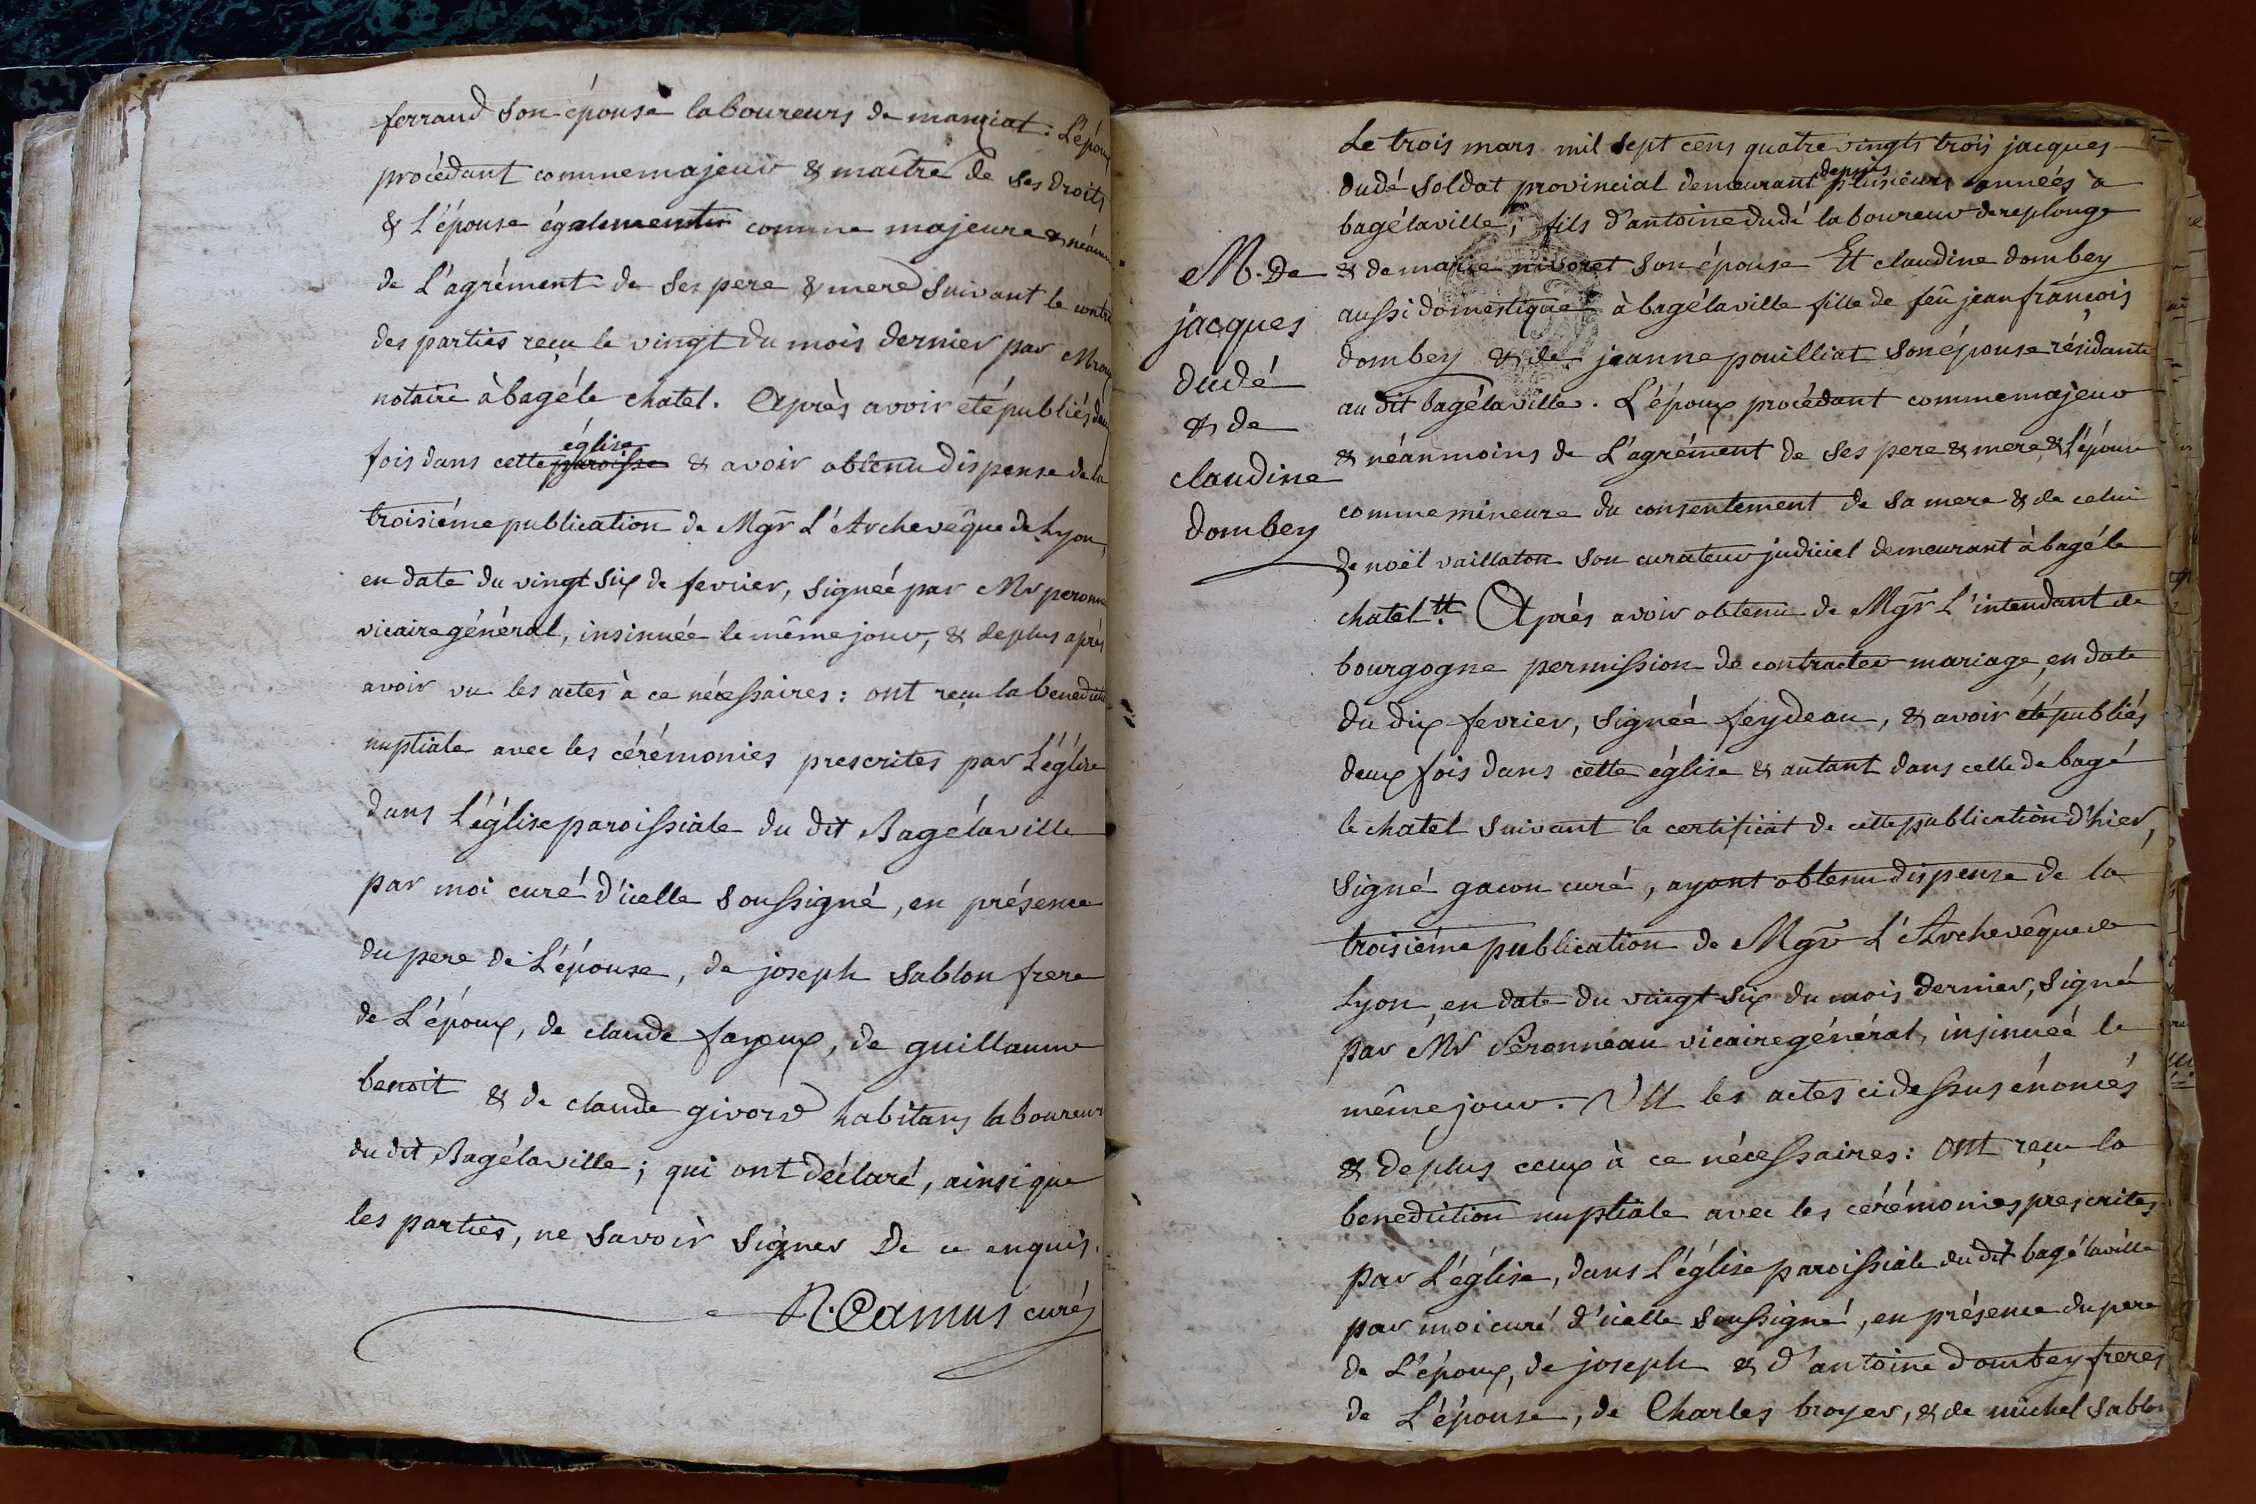 ferraud son épouse laboureurs de manziat : L'époux
procédant comme majeur & maître de ses droits
& L'épouse également comme majeure & néanm
de L'agrément de ses pere & mere suivant le contr
des parties reçu le vingt du mois dernier par
notaire à bagé le chatel. Après avoir été publiés deux
fois dans cette paroisse église & avoir obtenu dispense de la
troisiéme publication de Mgr L'Archevêque de Lyon,
en date du vingt six de fevrier, signée par Mr peronne
vicaire général, insinuée le même jour, & de plus après
avoir vu les actes à ce nécessaires : ont reçu la benedictio
nuptiale avec les cérémonies prescrites par L'église
dans L'église paroissiale du dit Bagélaville
par moi curé d'icelle soussigné, en présence
du pere de L'épouse, de joseph sablon frere
de L'époux, de claude fayeux, de guillaume
benoit & de claude givord habitans laboureurs
du dit Bagélaville ; qui ont déclaré, ainsi que
les parties, ne savoir signer De ce enquis.
N. Camus curé
M. De
jacques
dudé
& de
claudine
dombey
Le trois mars mil sept cens quatre vingts trois jacques
dudé soldat provincial demeurant depuis plusieurs années à
bagélaville, fils d'antoine dudé laboureur de replonge
& de marie nivoret son épouse Et claudine dombey
aussi domestique à bagélaville fille de feû jean françois
dombey & de jeanne pouilliat son épouse résidante
au dit bagélaville. L'époux procédant comme majeur
& néanmoins de L'agrément de ses pere & mere, & L'épouse
comme mineure du consentement de sa mere & de celui
de noël vaillaton son curateur judiciel demeurant à bagé le
chatel. Après avoir obtenu de Mgr L'intendant de
bourgogne permission de contracter mariage, en date
du dix fevrier, signée feydeau, & avoir été publiés
deux fois dans cette église & autant dans celle de bagé
le chatel suivant le certificat de cette publication d'hier,
signé gacon curé, ayant obtenu dispense de la
troisiéme publication de Mgr L'Archevêque de
Lyon, en date du vingt six du mois dernier, signé
par Mr Peronneau vicaire général, insinuée le
même jour. VU les actes ci dessus énoncés
& de plus ceux à ce nécessaires : ont reçu la
benediction nuptiale avec les cérémonies prescrites
par L'église, dans L'église paroissiale du dit bagélaville
par moi curé d'icelle soussigné, en présence du pere
de L'époux, de joseph & d'antoine dombey freres
de L'épouse, de Charles broyer, & de michel sablon